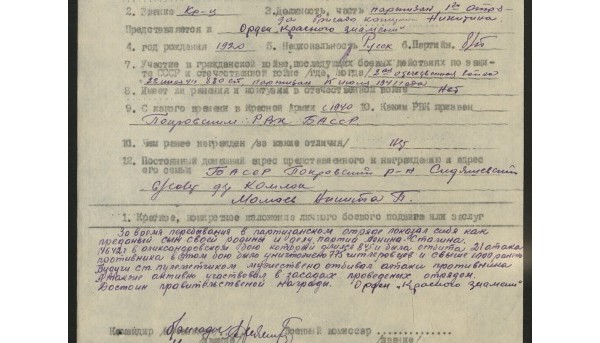 2. Звание Кр-ц 3. Должность, часть партизан, 1го отряда
бригады Никитина
Представляется к Орден „Красного знамени"
4. год рождения 1920 5. Национальность Русск 6. Партийн. б/п
7. Участие в гражданской войне, последующих боевых действиях по защите СССР и отечественной войне /где, когда/ 2ая отечественная война
партизан 1941 года
8. Имел ли ранения и контузии в отечественной войне Нет
9. С какого времени в Красной Армии с 1940 10. Каким РВК призван
Покровским РВК БАССР
10. Чем ранее награжден /за какие отличия/ Нет
12. Постоянный домашний адрес представленного к награждению и адрес
его семьи БАССР Покровский р-н
с/совет
Никита П.
1. Краткое, конкретное изложение личного боевого подвига или заслуг
За время пребывания в партизанском отряде показал себя как
преданный сын своей родины и делу партии Ленина-Сталина,
в бою который была отбита 21 атака
противника в этом бою было уничтожено 775 гитлеровцев и свыше 1000 ранено
Будучи ст. пулеметчиком мужественно отбивал атаки противника
А также активно участвовал в засадах проведенных отрядом.
Достоин правительственной награды. Орден „Красного знамени"
Командир Военный комиссар
/звание/